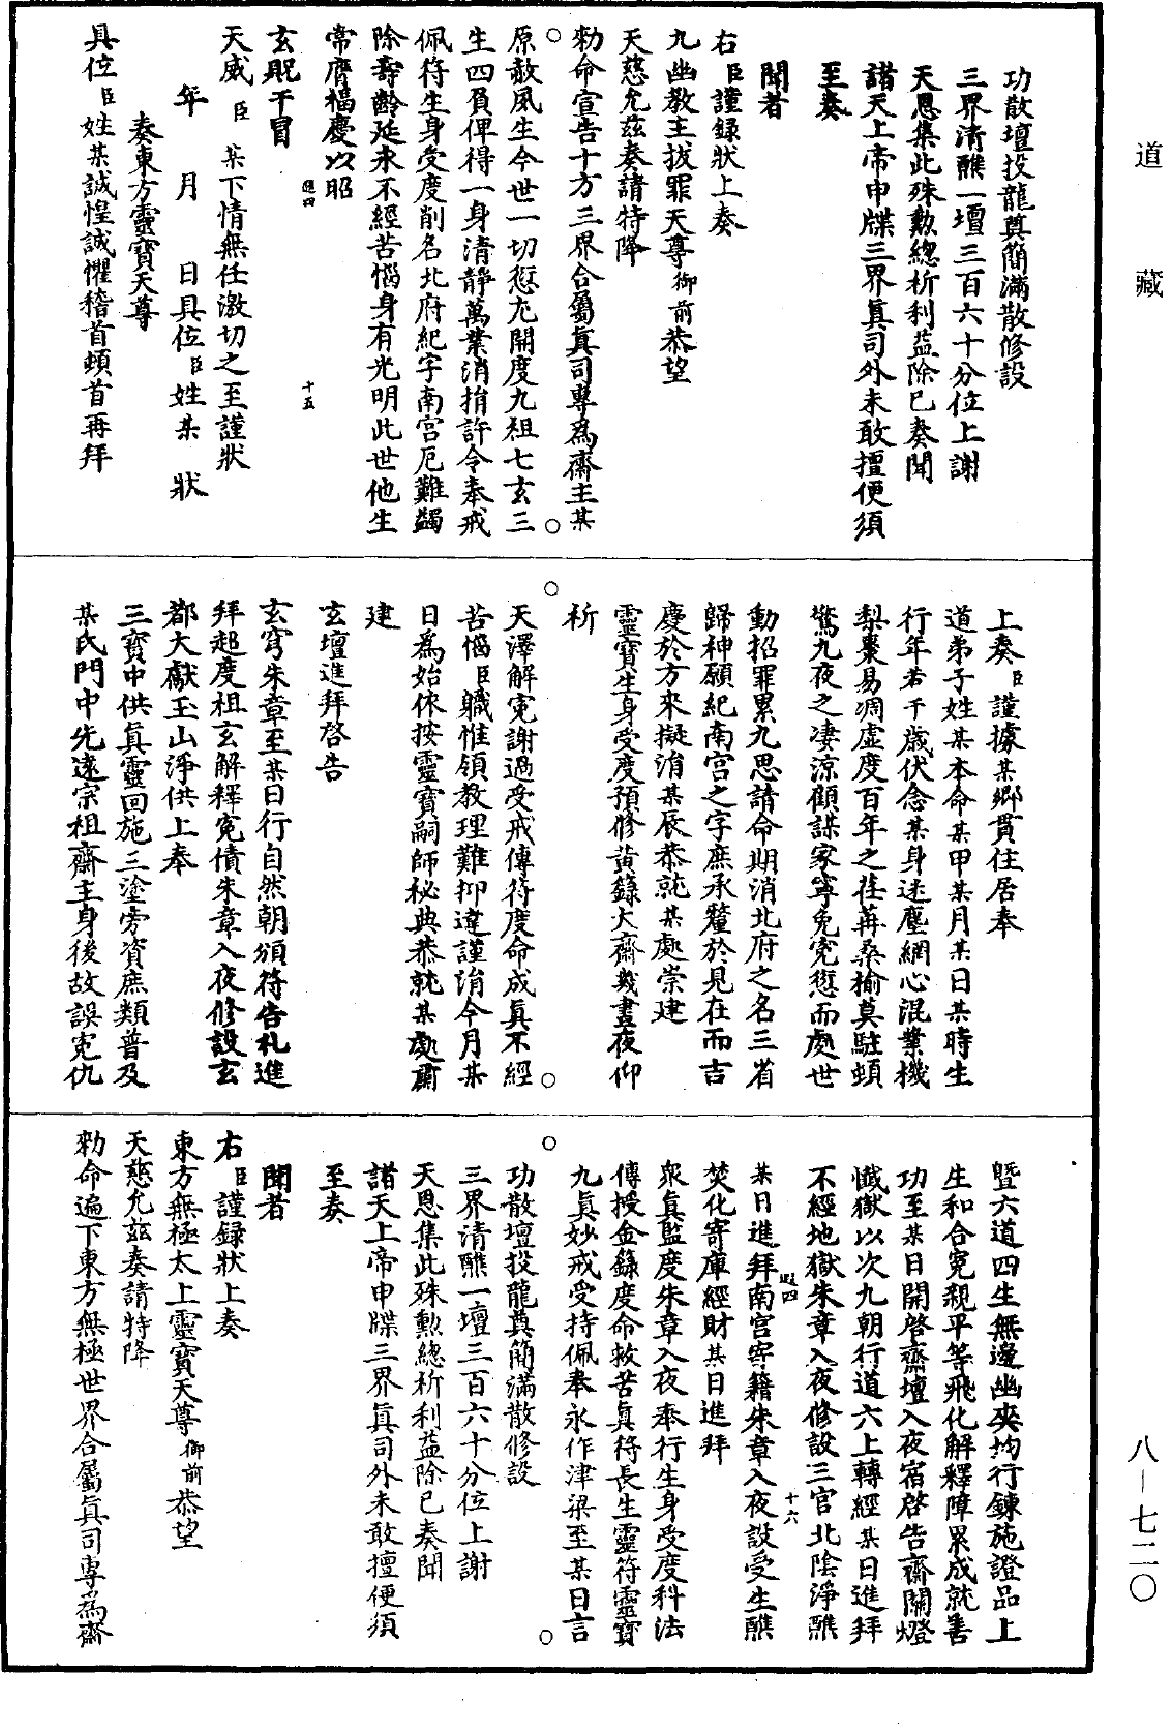 道藏
功散壇投龍奠簡滿散修設
三界清醮一壇三百六十分位上謝
天恩集此殊勲總祈利益除已奏聞
諸天上帝申牒三界眞司外未敢擅便須
至奏
聞者
右臣謹録狀上奏
九幽教主拔罪天尊御前恭望
天慈允兹奏請特降
勑命宣告十方三界合屬眞司專爲齋主某
原赦夙生今世一切愆尤開度九祖七玄三
生四負俾得一身清靜萬業消捐許令奉戒
佩符生身受度削名北府紀字南宫厄難蠲
除壽齡延永不經苦惱身有光明此世他生
常膺福慶以昭
玄貺干冒
天威臣某下情無任激切之至謹狀
年月日具位臣姓某狀
奏東方靈寶天尊
具位臣姓某誠惶誠懼稽首頓首再拜
上奏臣謹據某鄉貫住居奉
道弟子姓某本命某甲某月某日某時生
行年若干歲伏念某身迷塵網心混業機
梨棗易凋虚度百年之荏苒桑揄莫駐頓
驚九夜之凄涼顧謀家寧免寃愆而處世
動招罪累九思請命期消北府之名三省
歸神願紀南宫之字庶承釐於見在而吉
慶於方來擬涓某辰恭就某處崇建
靈寶生身受度預修黄籙大齋幾晝夜仰
祈
天澤解寃謝過受戒傳符度命成眞不經
苦惱臣職惟領教理難抑違謹涓今月某
日爲始依按靈寶嗣師秘典恭就某處肅
建
玄壇進拜啓告
玄穹朱章至某日行自然朝頒符告札進
拜超度祖玄解釋寃債朱章入夜修設玄
都大獻玉山淨供上奉
三寶中供眞靈回施三塗旁資庶類普及
某氏門中先遠宗祖齋主身後故誤寃仇
暨六道四生無邊幽爽均行鍊施證品上
生和合寃親平等飛化解釋障累成就善
功至某日開啓齋壇入夜宿啓告齋關燈
懺獄以次九朝行道六上轉經某日進拜
不經地獄朱章入夜修設三官北陰淨醮
某日進拜南宫寄籍朱章入夜設受生醮
焚化寄庫經財某日進拜
衆眞監度朱章入夜奉行生身受度科法
傳授金籙度命救苦眞符長生靈符靈寶
九眞妙戒受持佩奉永作津梁至某日言
功散壇投龍奠簡滿散修設
三界清醮一壇三百六十分位上謝
天恩集此殊勲總祈利益除已奏聞
諸天上帝申牒三界眞司外未敢擅便須
至奏
聞者
右臣謹録狀上奏
東方無極太上靈寶天尊御前恭望
天慈允兹奏請特降
勑命遍下東方無極世界合屬眞司專爲齋
十五
十六
八—七二〇